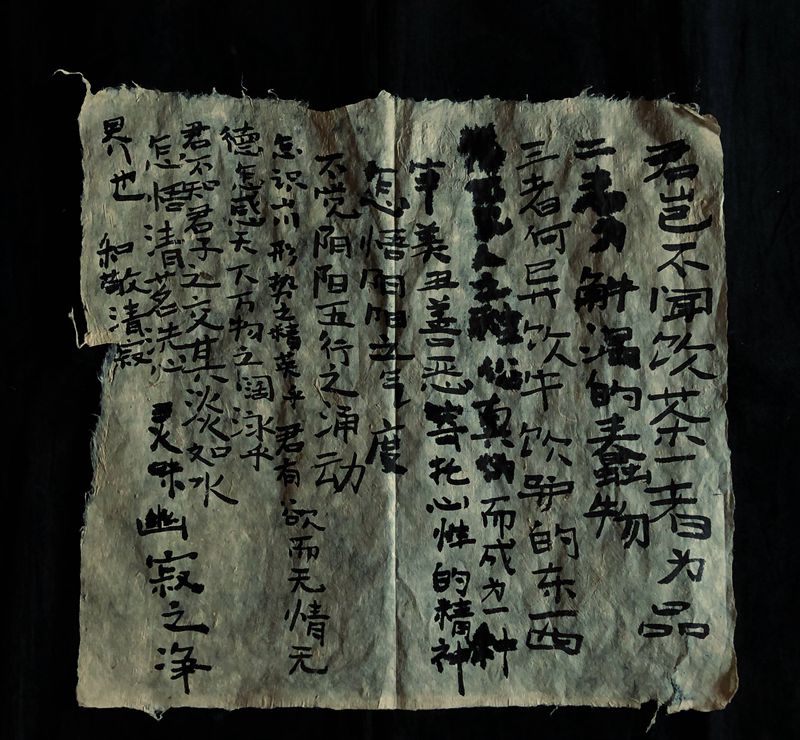 君岂不闻饮茶一者为品
二者为解渴的蠢物
三者何异饮牛饮驴的东西
雅俗真伪而成为一种
事美丑善恶寄托心性的精神
怎悟阴阳之气度
不觉阴阳五行之涌动
怎识山形势之精英乎君有欲而无情无
德怎感天下万物之阔泳乎
君不知君子之交其淡如水
怎悟清茗洗心灵味幽寂之净
界也 和敬清寂